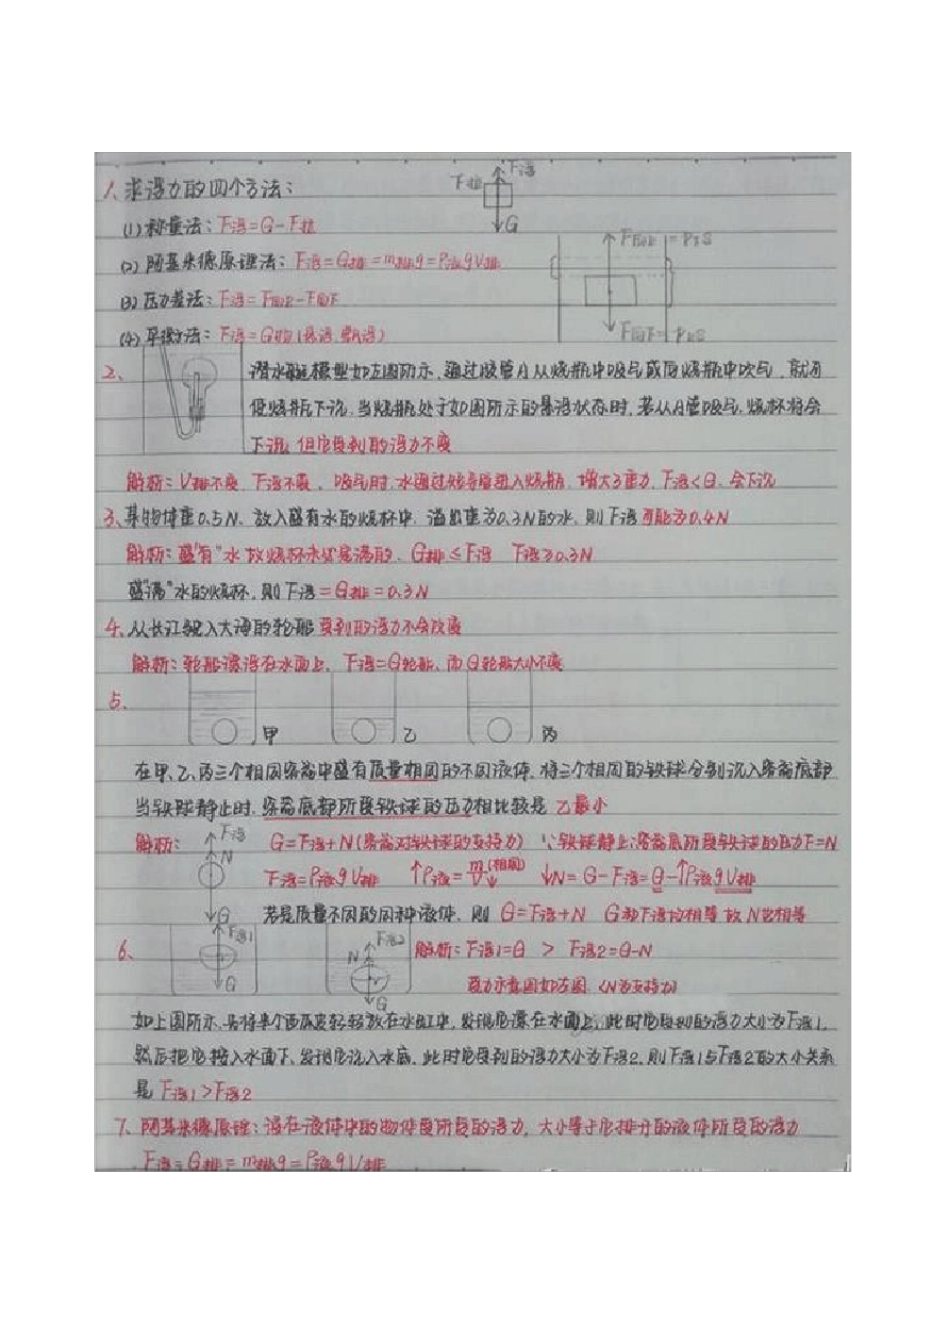 1、求浮力的四个方法：
F拉 F浮
G
(1)称量法：F浮=G-F拉
(2)阿基米德原理法：F浮=G排=m排g=ρ液gV排
(3)压力差法：F浮=F向上-F向下
(4)平衡方法：F浮=G物(悬浮、漂浮)
F向上
F向下
2、
潜水艇模型如左图所示、通过胶管A从烧瓶中吸气或向烧瓶中吹气，就可
使烧瓶下沉、当烧瓶处于如图所示的悬浮状态时，若从A管吸气，烧杯将会
下沉，但它受到的浮力不变
解析：V排不变，F浮不变，吸气时，水通过玻璃管进入烧瓶，增大了重力，F浮<G，会下沉
3、某物体重0.5N、放入盛有水的烧杯中，溢出重为0.3N的水，则F浮可能为0.4N
解析：盛"有"水故烧杯未必是满的、G排≤F浮 F浮≥0.3N
盛"满"水的烧杯，则F浮=G排=0.3N
4、从长江驶入大海的轮船受到的浮力不会改变
解析：轮船漂浮在水面上、F浮=G轮船、而G轮船大小不变
5、
甲 乙 丙
在甲、乙、丙三个相同容器中盛有质量相同的不同液体，将三个相同的铁球分别沉入容器底部
当铁球静止时，容器底部所受铁球的压力相比较是 乙最小
解析：
F浮
N
G
G=F浮+N(容器对铁球的支持力) ∵铁球静止∴容器底所受铁球的压力F=N
F浮=ρ液gV排 ↑ρ液=m(相同)/V↓ ↓N=G-F浮=G-↑ρ液gV排
若是质量不同的同种液体，则 G=F浮+N G和F浮均相等故N也相等
6、
F浮1
G
F浮2
N
G
解析：F浮1=G > F浮2=G-N
受力示意图如左图 (N为支持力)
如上图所示，将半个西瓜皮轻轻放在水缸中，发现它漂在水面上，此时它受到的浮力大小为F浮1，
然后把它按入水面下、发现它沉入水底，此时它受到的浮力大小为F浮2，则F浮1与F浮2的大小关系
是 F浮1>F浮2
7、阿基米德原理：浸在液体中的物体受所受的浮力，大小等于它排开的液体所受的浮力
F浮=G排=m排g=ρ液gV排